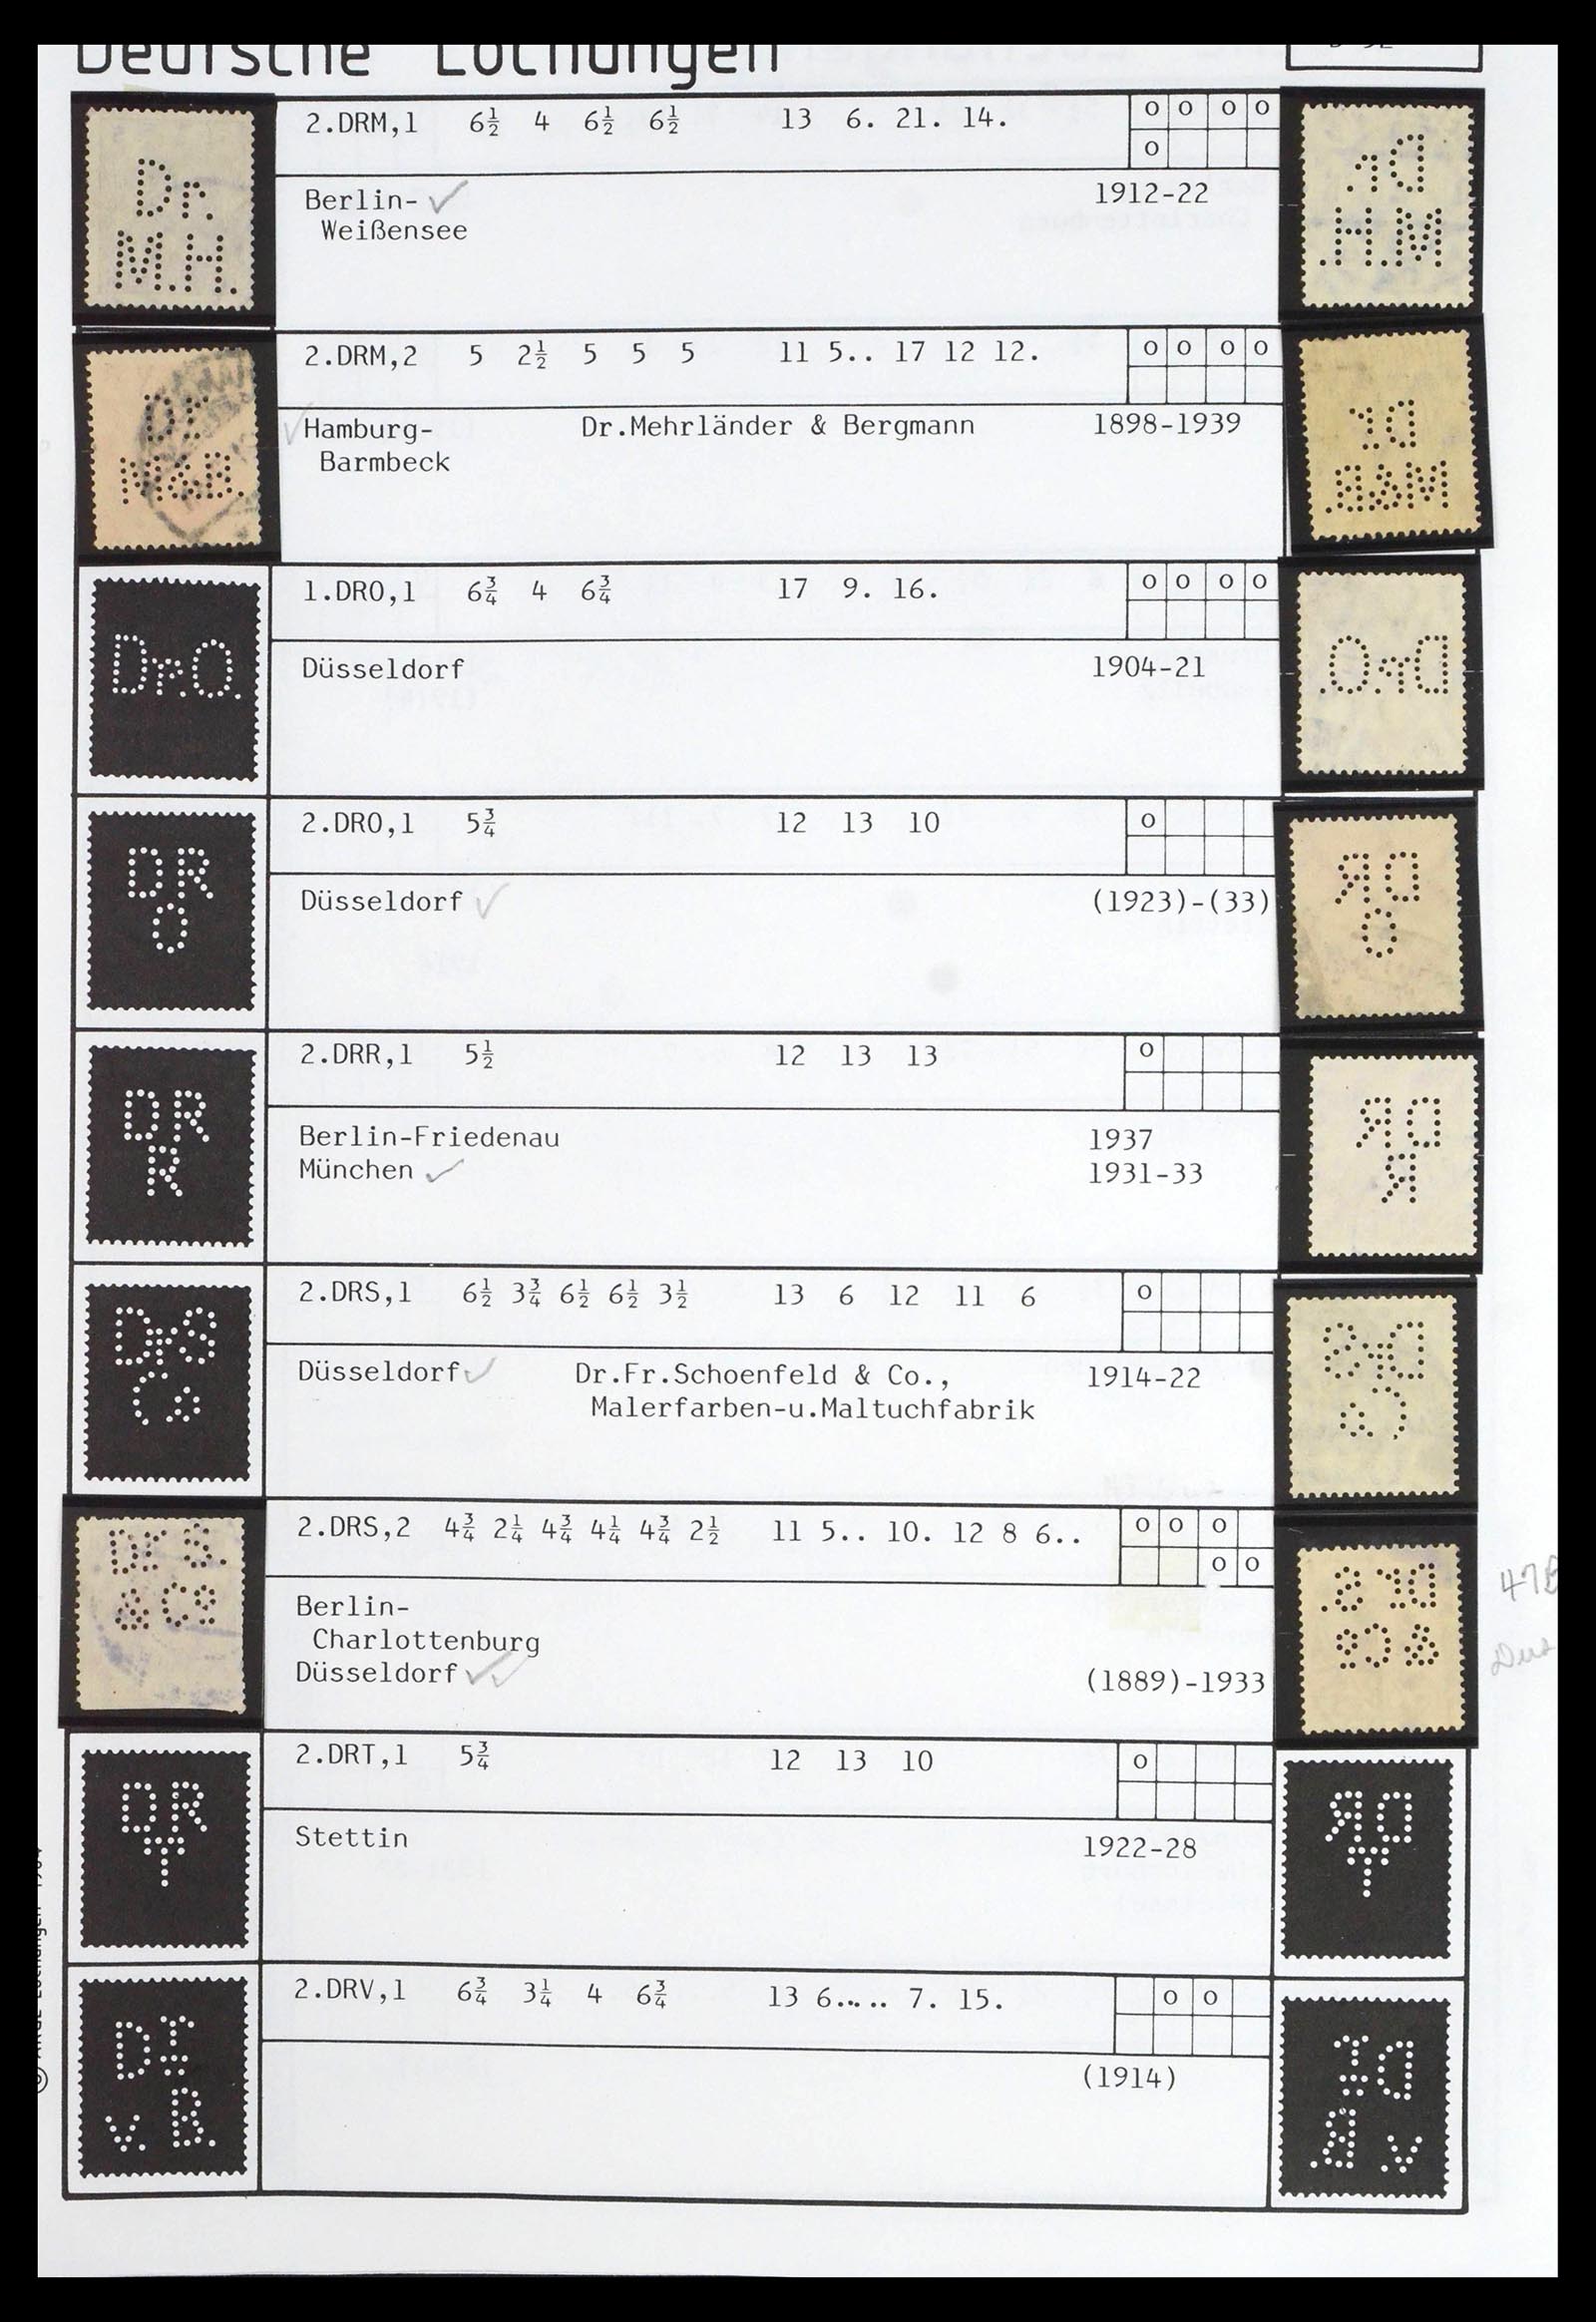 Deutsche Lochungen
Dr.
M.H.
2.DRM,1 6½ 4 6½ 6½ 13 6. 21. 14.
o o o o
o
Berlin- 1912-22
Weißensee
Dr.
M.H.
Dr
M&B.
2.DRM,2 5 2½ 5 5 5 11 5.. 17 12 12.
o o o o
Hamburg- Dr.Mehrländer & Bergmann 1898-1939
Barmbeck
Dr
M&B.
Dr.O.
1.DRO,1 6¾ 4 6¾ 17 9. 16.
o o o o
Düsseldorf 1904-21
Dr.O.
DR
O
2.DRO,1 5¾ 12 13 10
o
Düsseldorf (1923)-(33)
DR
O
DR
R
2.DRR,1 5½ 12 13 13
o
Berlin-Friedenau 1937
München 1931-33
DR
R
DrS
Co
2.DRS,1 6½ 3¾ 6½ 6½ 3½ 13 6 12 11 6
o
Düsseldorf Dr.Fr.Schoenfeld & Co., 1914-22
Malerfarben-u.Maltuchfabrik
DrS
Co
Dr S.
& Co
2.DRS,2 4¾ 2¼ 4¾ 4¼ 4¾ 2½ 11 5.. 10. 12 8 6..
o o o
o o
Berlin-
Charlottenburg
Düsseldorf (1889)-1933
Dr S.
& Co
DR
T
2.DRT,1 5¾ 12 13 10
o
Stettin 1922-28
DR
T
Dr
v. B.
2.DRV,1 6¾ 3¼ 4 6¾ 13 6..... 7. 15.
o o
(1914)
Dr
v B.